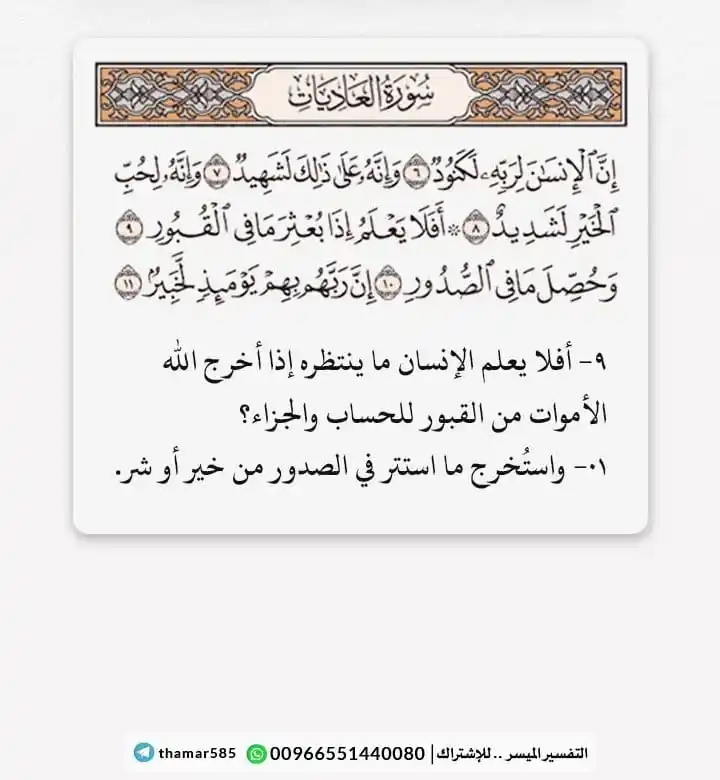 سُورَةُ العَادِيَاتِ
إِنَّ ٱلۡإِنسَٰنَ لِرَبِّهِۦ لَكَنُودٞ ٦ وَإِنَّهُۥ عَلَىٰ ذَٰلِكَ لَشَهِيدٞ ٧ وَإِنَّهُۥ لِحُبِّ
ٱلۡخَيۡرِ لَشَدِيدٌ ٨ ۞ أَفَلَا يَعۡلَمُ إِذَا بُعۡثِرَ مَا فِي ٱلۡقُبُورِ ٩
وَحُصِّلَ مَا فِي ٱلصُّدُورِ ١٠ إِنَّ رَبَّهُم بِهِمۡ يَوۡمَئِذٖ لَّخَبِيرُۢ ١١
٩- أفلا يعلم الإنسان ما ينتظره إذا أخرج الله
الأموات من القبور للحساب والجزاء؟
٠١- واستُخرج ما استتر في الصدور من خير أو شر.
التفسير الميسر .. للإشتراك | 00966551440080 thamar585